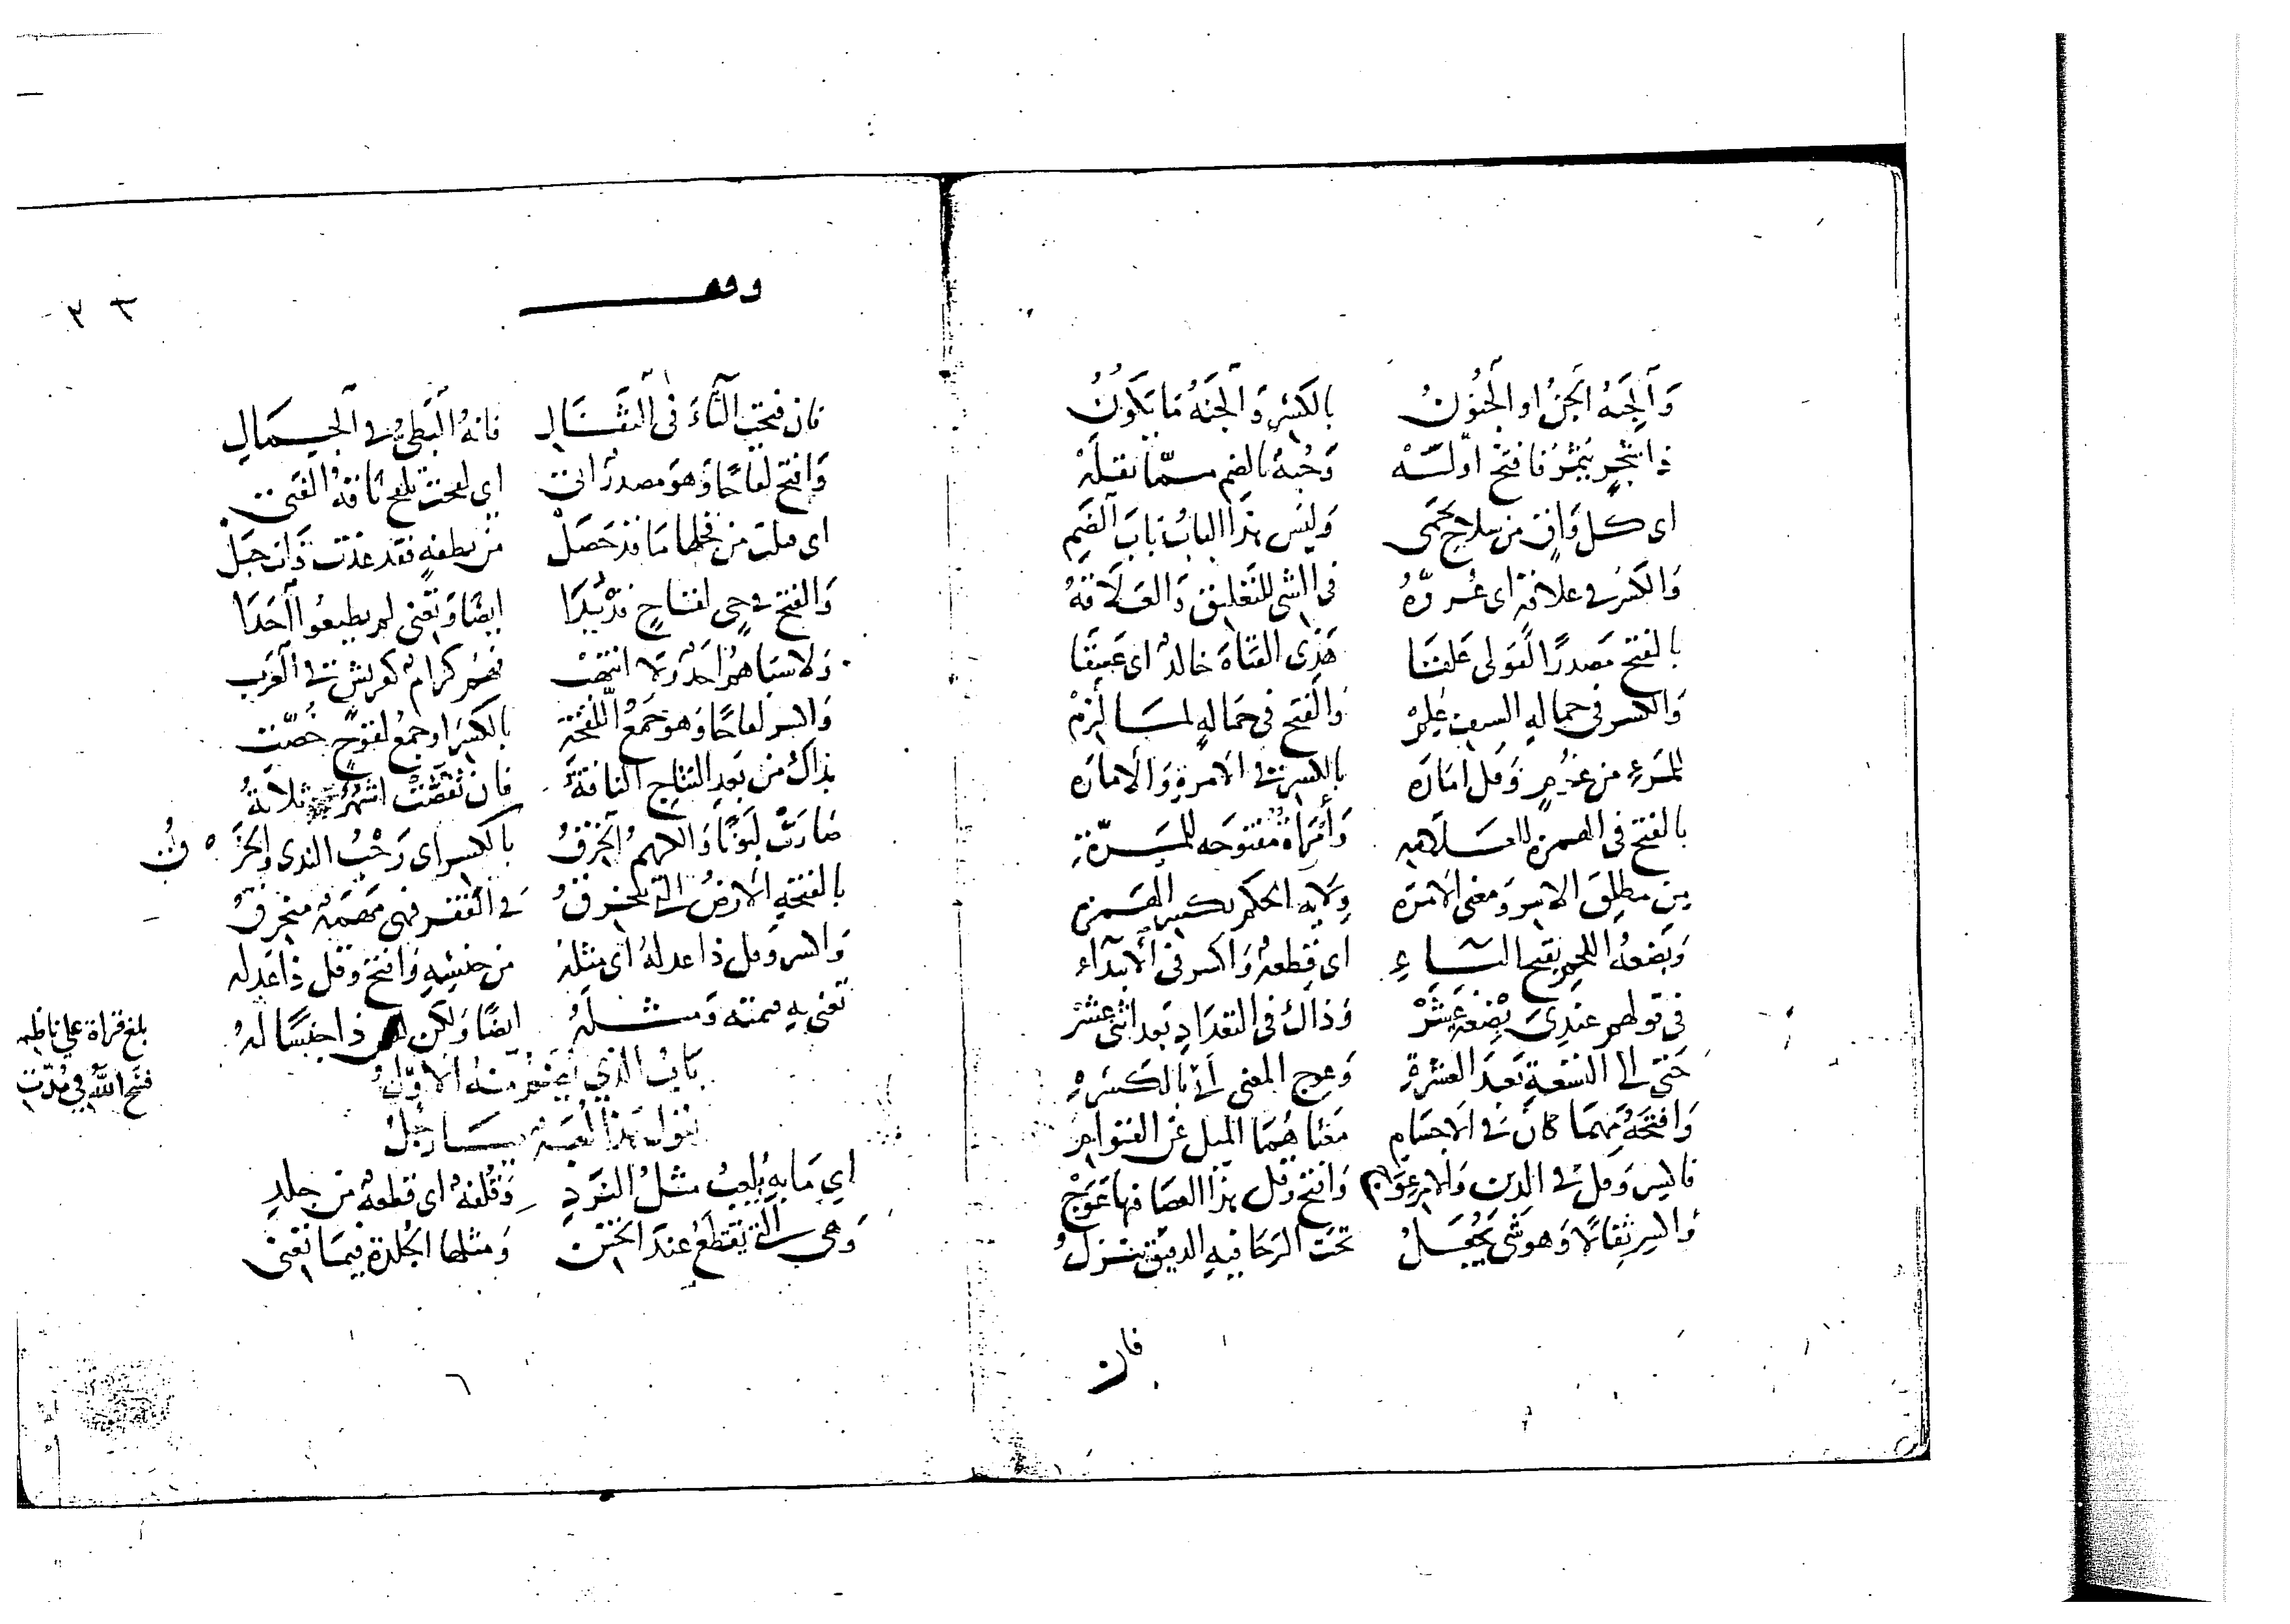 وَالجِنّةُ الجِنُّ او الجُنُونُ بالكَسْرِ وَالجَنّةُ مَا يَكُونُ
ذا شَجَرٍ يُثْمِرُ فافتَحْ اوّلَهْ وَجُنةٌ بالضم مما نقلَهْ
اى كل وَاقٍ من سلاحٍ يحمى وَليْسَ هَذا البابُ بَابَ الضَّمِ
وَالكَسْرُ في علاقةٍ اى عُروَهْ في الشى للتَعْلِيقِ وَالعَلاقَهْ
بالفتحِ مَصدرًا لقولى عَلقَا هَذِى الفتاةَ خالدٌ اى عَشِقَا
وَالكسر فى حمالهِ السيف عُلِمْ وَالفَتح فى حَمَالهٍ لمَا لَزِمْ
للمَرءِ من غُرمٍ وَقل امَارَه بالكسرِ في الامرةِ وَالامارَه
بالفتح فى الهمزة للعَلامه وَأمْرَةٌ مفتوحَه للمَرّةِ
مِن مطلقِ الامرِ وَمعنى الامرَه وِلايه الحكم بكسر الهَمزه
وَبَضعهُ اللحمِ بفتح البَاءِ اى قِطعةٌ وَاكسر فى الابتدَاء
فى قولهم عندِىَ بِضْعةَ عَشَرْ وَذاك فى التعدَادِ بَعد اثنى عَشَرْ
حَتى الى التسْعةِ بَعدَ العَشْرةِ وَعِوج المعنى اتى بالكَسْرَهِ
وَافتحهُ مَهمَا كانَ في الاجسَامِ مَعناهُمَا الميل عَن القَوامِ
فاكسِر وَقل في الدِين وَالامرِ عِوَج وَافتح وَقل هَذا العصَا فيها عَوَجْ
وَاكسِر ثِفالًا وَهو شى يُجْعَلُ تحتَ الرّحَا فيهِ الدقيقُ ينزلُ
فان
وقف
٣٣
فان فتحت الثاءَ فى الثَّفَالِ فانهُ البَطىُّ في الجِمَالِ
وَافتح لَقاحًا وَهوَ مصدرٌ اتى اى لقحت تلقح نَاقةُ الفَتى
اى قبلت من فحلها مَا قد حَصَلْ من نطفةٍ فقد غدَت ذَات حَبَلْ
وَالفتح في حىٍ لقاحٍ قدْ بَدَا ايضًا وَتعْنى لم يطيعُوا احَدَا
وَلا سبَاهم احَدٌ وَلا انتهبْ فهُم كرامٌ كقريشٍ في العَرَب
وَاكسر لقاحًا وَهوَ جَمعُ اللقْحَةِ بالكَسْرِ او جَمعُ لقُوحٍ خُصّتِ
بذاك من بَعدِ النتاجِ الناقةُ فان تقَضَّتْ اشْهُرٌ ثلاثةُ
صَارَتْ لبَونًا وَالكريمُ الخِرْقُ بالكسر اى رَحْبُ الندى وَالخَرْقُ
بالفتحةِ الارْضُ التى تنخرقُ في القَفر فهى مَهمَهٌ منخرقُ
وَاكسر وَقل ذا عِدلهُ اى مثلهُ من جنسِهِ وَافتح وَقل ذا عَدلهُ
تعنى بهِ قيمتَه وَمثلَهُ ايضًا وَلكن ليس ذا جنسًا لَهُ
بَابُ الذي يُضَمُّ منهُ الاوّلُ
نقول هَذا لعْبَةٌ يَا رَجُلُ
اي مَا بِهِ يُلعَبُ مثلُ النّردِ وَقُلفةٌ اى قطعةٌ من جلدِ
وَهى التى تقطَعُ عندَ الخَتنِ وَمثلها الجُلدة فيمَا نَعنى
بلغ قراة علي ناظمه
فسح الله في مُدّته